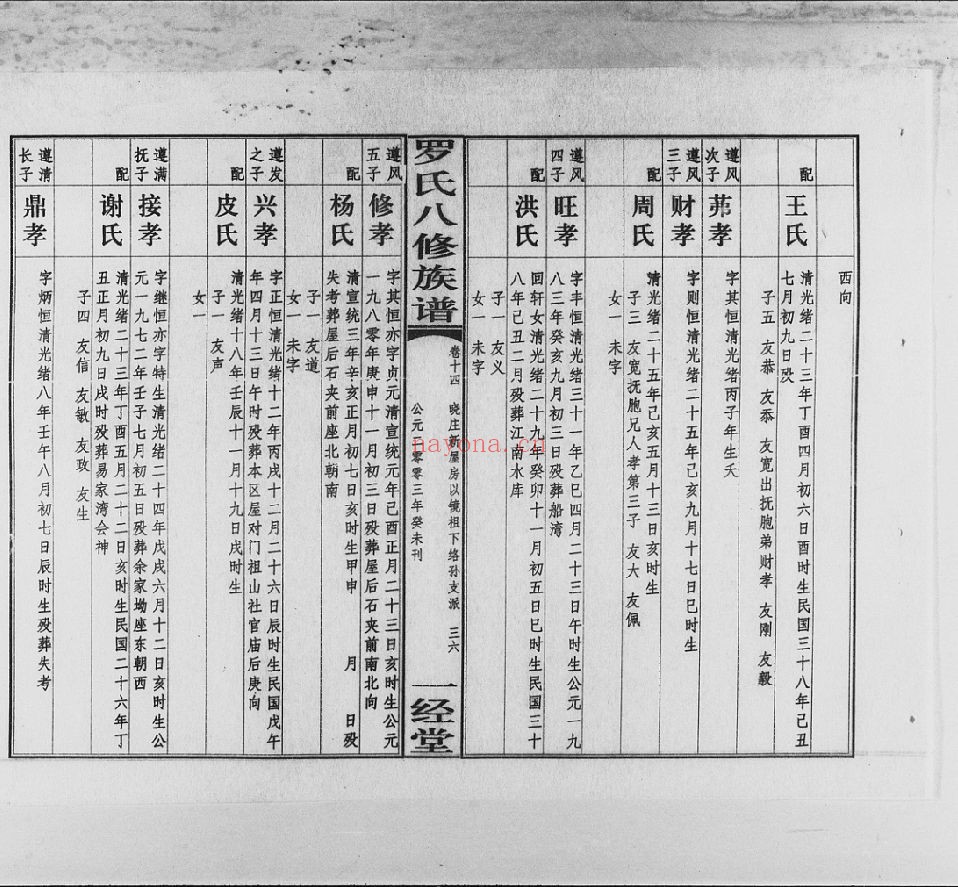 西向
配 王氏 清光绪二十三年丁酉四月初六日酉时生民国三十八年己丑
七月初九日殁
子五 友恭 友忝 友宽出抚胞弟财孝 友刚 友毅
遵凤次子 茀孝 字其恒清光绪丙子年生夭
遵凤三子 财孝 字则恒清光绪二十五年己亥九月十七日巳时生
配 周氏 清光绪二十五年己亥五月十三日亥时生
子三 友宽抚胞兄人孝第三子 友大 友佩
女一 未字
遵凤四子 旺孝 字丰恒清光绪三十一年乙巳四月二十三日午时生公元一九
八三年癸亥九月初三日殁葬船湾
配 洪氏 回轩女清光绪二十九年癸卯十一月初五日巳时生民国三十
八年己丑二月殁葬江南木库
子一 友义
女一 未字
罗氏八修族谱
卷十四 晓庄新屋房以镜祖下络孙支派 三六
公元二零零三年癸未刊
一经堂
遵凤五子 修孝 字其恒亦字贞元清宣统元年己酉正月二十三日亥时生公元
一九八零年庚申十一月初三日殁葬屋后石夹前南北向
配 杨氏 清宣统三年辛亥正月初七日亥时生甲申 月 日殁
失考葬屋后石夹前座北朝南
子一 友道
女一 未字
遵发之子 兴孝 字正恒清光绪十二年丙戌十二月二十六日辰时生民国戊午
年四月十三日午时殁葬本区屋对门祖山社官庙后庚向
配 皮氏 清光绪十八年壬辰十一月十九日戌时生
子一 友声
女一
遵满抚子 接孝 字继恒亦字特生清光绪二十四年戊戌六月十二日亥时生公
元一九七二年壬子七月初五日殁葬余家坳座东朝西
配 谢氏 清光绪二十三年丁酉五月二十二日亥时生民国二十六年丁
丑正月初九日戌时殁葬易家湾会神
子四 友信 友敏 友玫 友生
遵清长子 鼎孝 字炳恒清光绪八年壬午八月初七日辰时生殁葬失考
nayona.cn